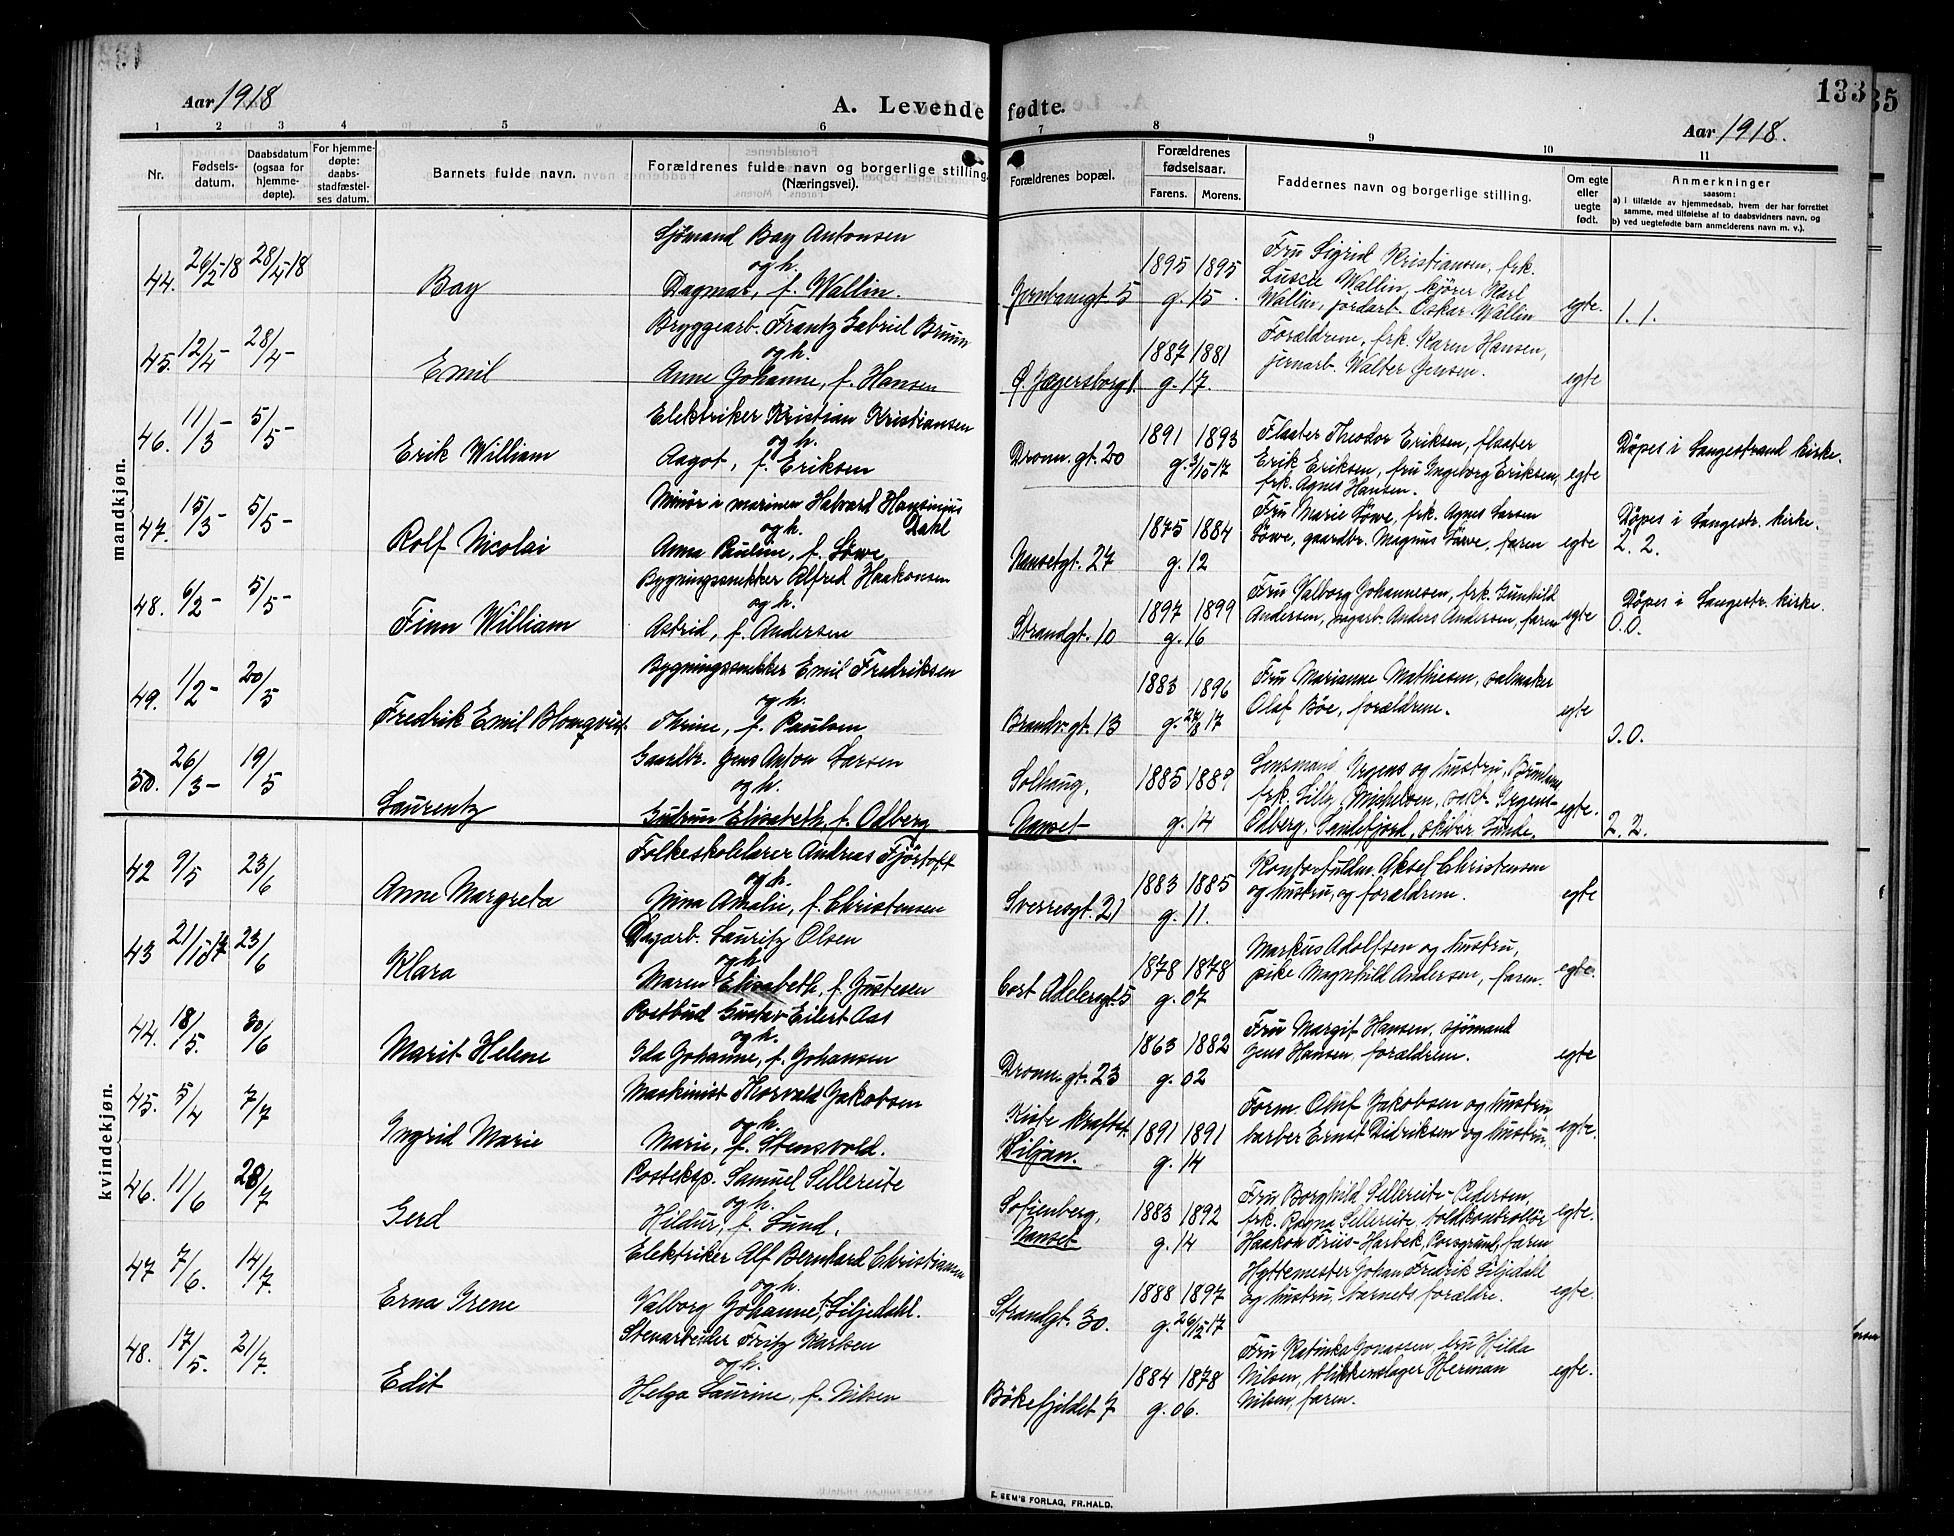 133
35
Aar 1918
A. Levende fødte.
Aar 1918.
1 2 3 4 5 6 7 8 9 10 11
Nr.
Fødsels-
datum.
Daabsdatum
(ogsaa for
hjemme-
døpte).
For hjemme-
døpte:
daabs-
stadfæstel-
ses datum.
Barnets fulde navn.
Forældrenes fulde navn og borgerlige stilling.
(Næringsvei).
Forældrenes bopæl.
Forældrenes
fødselsaar.
Farens. Morens.
Faddernes navn og borgerlige stilling.
Om egte
eller
uegte
født.
Anmerkninger
saasom:
a) i tilfælde av hjemmedaab, hvem der har forrettet
samme, med tilføielse af to daabsvidners navn, og
b) ved uegtefødte barn anmelderens navn m. v.).
mandkjøn.
44. 26/2-18 28/4-18 Bay
Sjömand Bay Antonsen
og h.
Dagmar, f. Wallin.
Jernbanegt. 5
1895 1895
g. 15.
Fru Sigrid Kristiansen, frk.
Luscie Wallin, kjörer Karl
Wallin, jordarb. Oskar Wallin
egte.
1. 1.
45. 12/4- 28/4- Emil
Bryggearb. Frantz Gabriel Bruun
og h.
Anne Johanne, f. Hansen
Ö. Jægersborgt.
1887 1881
g. 17.
Forældrene, frk. Karen Hansen,
jernarb. Walter Jensen.
egte
46. 11/3- 5/5- Erik William
Elektriker Kristian Kristiansen
og h.
Aagot, f. Eriksen
Dronn. gt. 20
1891 1893
g. 3/10 17
Fløater Theodor Eriksen, fløater
Erik Eriksen, fru Ingeborg Eriksen,
frk. Agnes Hansen.
egte
Döpes i Langestrand kirke.
47. 15/3- 5/5- Rolf Nicolai
Minör i marinen Halvard Hansinius
og h. Dahl
Anna Pauline, f. Löwe
Nansetgt. 27
1875 1884
g. 12
Fru Marie Löwe, frk. Agnes Larsen
Löwe, gaardbr. Magnus Löwe, faren
egte
Döpes i Langestr. kirke.
2. 2.
48. 6/2- 5/5- Finn William
Bygningssnekker Alfred Haakonsen
og h.
Astrid, f. Andersen
Strandgt. 10
1897 1899
g. 16
Fru Valborg Johannesen, frk. Gunhild
Andersen, Anders Andersen, faren
egte
Döpes i Langestr. kirke.
0.0.
49. 1/2- 20/5 Fredrik Emil Blomqvist.
Bygningssnekker Emil Fredriksen
og h.
Thrine, f. Paulsen
Brandv. gt. 13
1883 1896
g. 27/8 17
Fru Marianne Mathiesen, salmaker
Olaf Böe, forældrene.
egte
0.0.
50. 26/3- 19/5 Laurentz
Gaardbr. Jens Anton Larsen
og h.
Gudrun Elisabeth, f. Odberg
Solhaug,
Nanset
1885 1889
g. 14
Lensmand Jrgens og hustru, Brunlanes,
frk. Lilly Michelsen, Jrgens-
Odberg, Sandefjord, skiber Linde,
egte.
2. 2.
kvindekjøn.
42 9/5 23/6 Anne Margreta
Folkeskolelærer Andreas Fjörtoft
og h.
Nina Amalie, f. Christensen
Sverresgt. 21
1883 1885
g. 11.
Kontorfuldm. Aksel Christensen
og hustru, og forældrene.
egte
43 21/10 17 23/6 Klara
Dagarb. Lauritz Olsen
og h.
Maren Elisabeth, f. Justesen
Cort Adelersgt. 5
1878 1878
g. 07
Markus Adolfsen og hustru,
pike Magnhild Andersen, faren.
egte.
44. 18/5. 30/6 Marit Helene
Postbud Gustav Eilert Aas
og h.
Ida Johanne, f. Johansen
Dronn. gt. 23
1863 1882
g. 02
Fru Margit Hansen, sjömand
Jens Hansen, forældrene.
egte
45. 5/4 7/7 Ingrid Marie
Maskinist Thorvald Jakobsen
og h.
Marie, f. Stensvold.
Kiste kraftst.
Kiljan.
1891 1891
g. 14
Form. Oluf Jakobsen og hustru,
barber Ernst Didriksen og hustru.
egte.
46. 11/6 28/7 Gerd
Posteksp. Samuel Sellereite
og h.
Hildur, f. Lund.
Sofienberg,
Nanset
1883 1892
g. 14
Fru Borghild Sellereite-Pedersen,
frk. Ragna Sellereite, toldkontrollör
Haakon Friis-Harbek, Porsgrund, faren
egte.
47 7/6. 14/7. Erna Irene
Elektriker Alf Bernhard Christiansen
og h.
Valborg Johanne, f. Liljedahl.
Strandgt. 30.
1888 1897
g. 26/12 17
Hyttemester Johan Fredrik Liljedahl
og hustru, barnets forældre.
egte.
48. 17/5. 21/7. Edit
Stenarbeider Fritz Karlsen
og h.
Helga Laurine, f. Nilsen
Bökefjeldet 7
1884 1878
g. 06.
Fru Katinka Jonassen, fru Hilda
Nilsen, blikkenslager Herman
Nilsen, faren.
egte.
E. SEM'S FORLAG, FR.HALD.